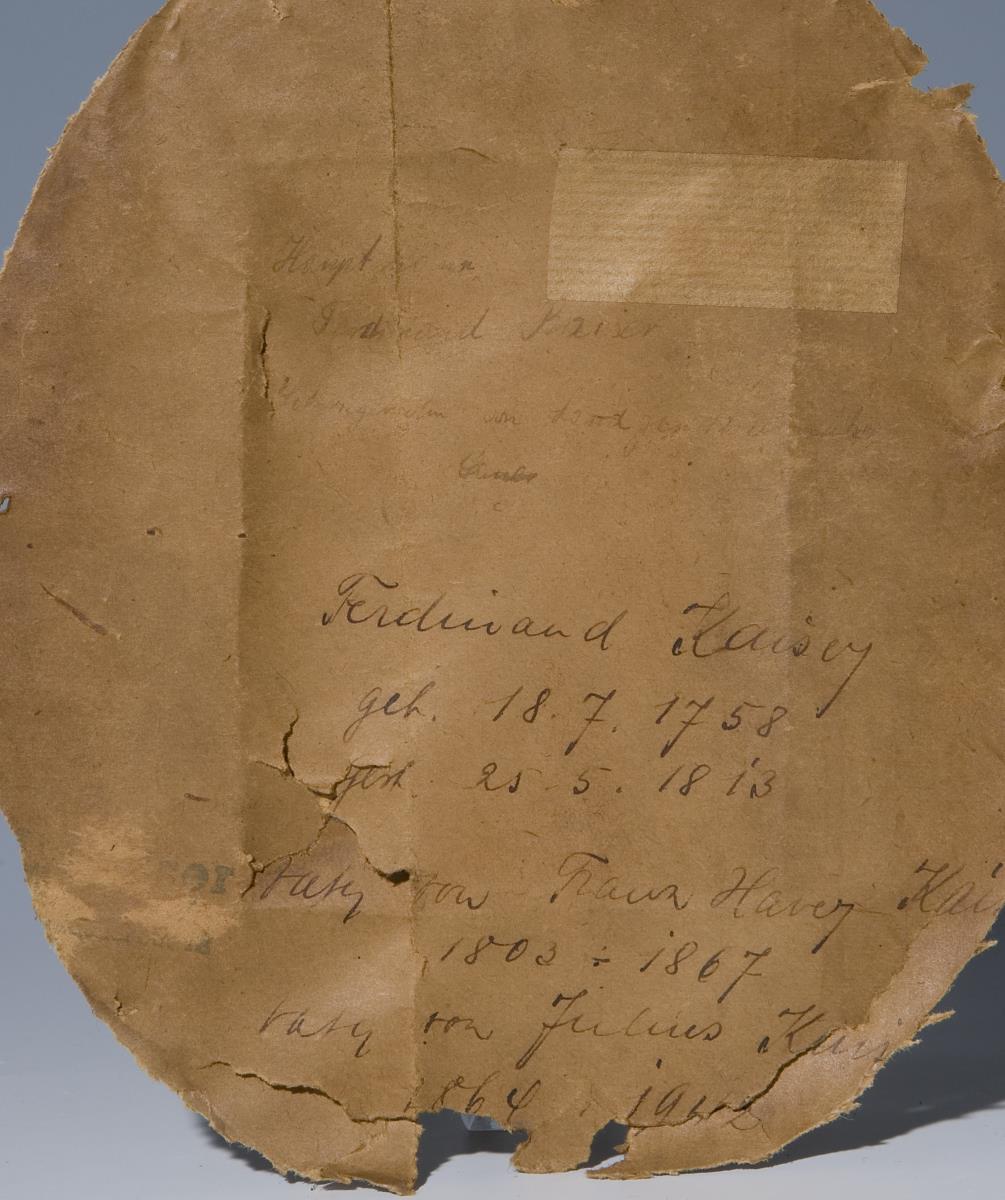 Hauptmann
Ferdinand Kaiser
von
Ferdinand Kaiser
geb. 18. 7. 1758
gest. 25. 5. 1813
Vater von Franz Xaver Kai
1803 ÷ 1867
Vater von Julius Kais
1864 ÷ 1942